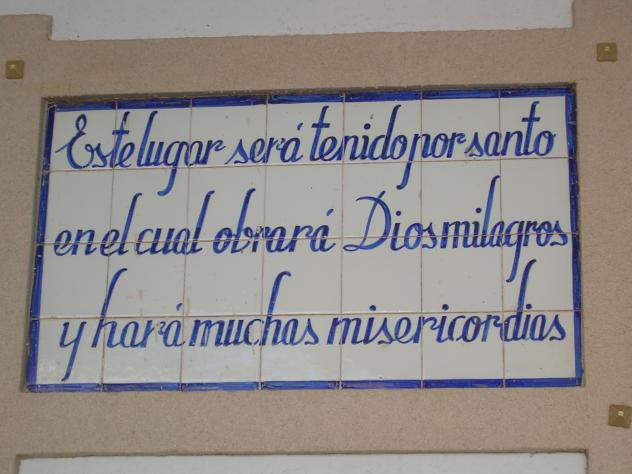 Este lugar será tenido por santo
en el cual obrará Dios milagros
y hará muchas misericordias